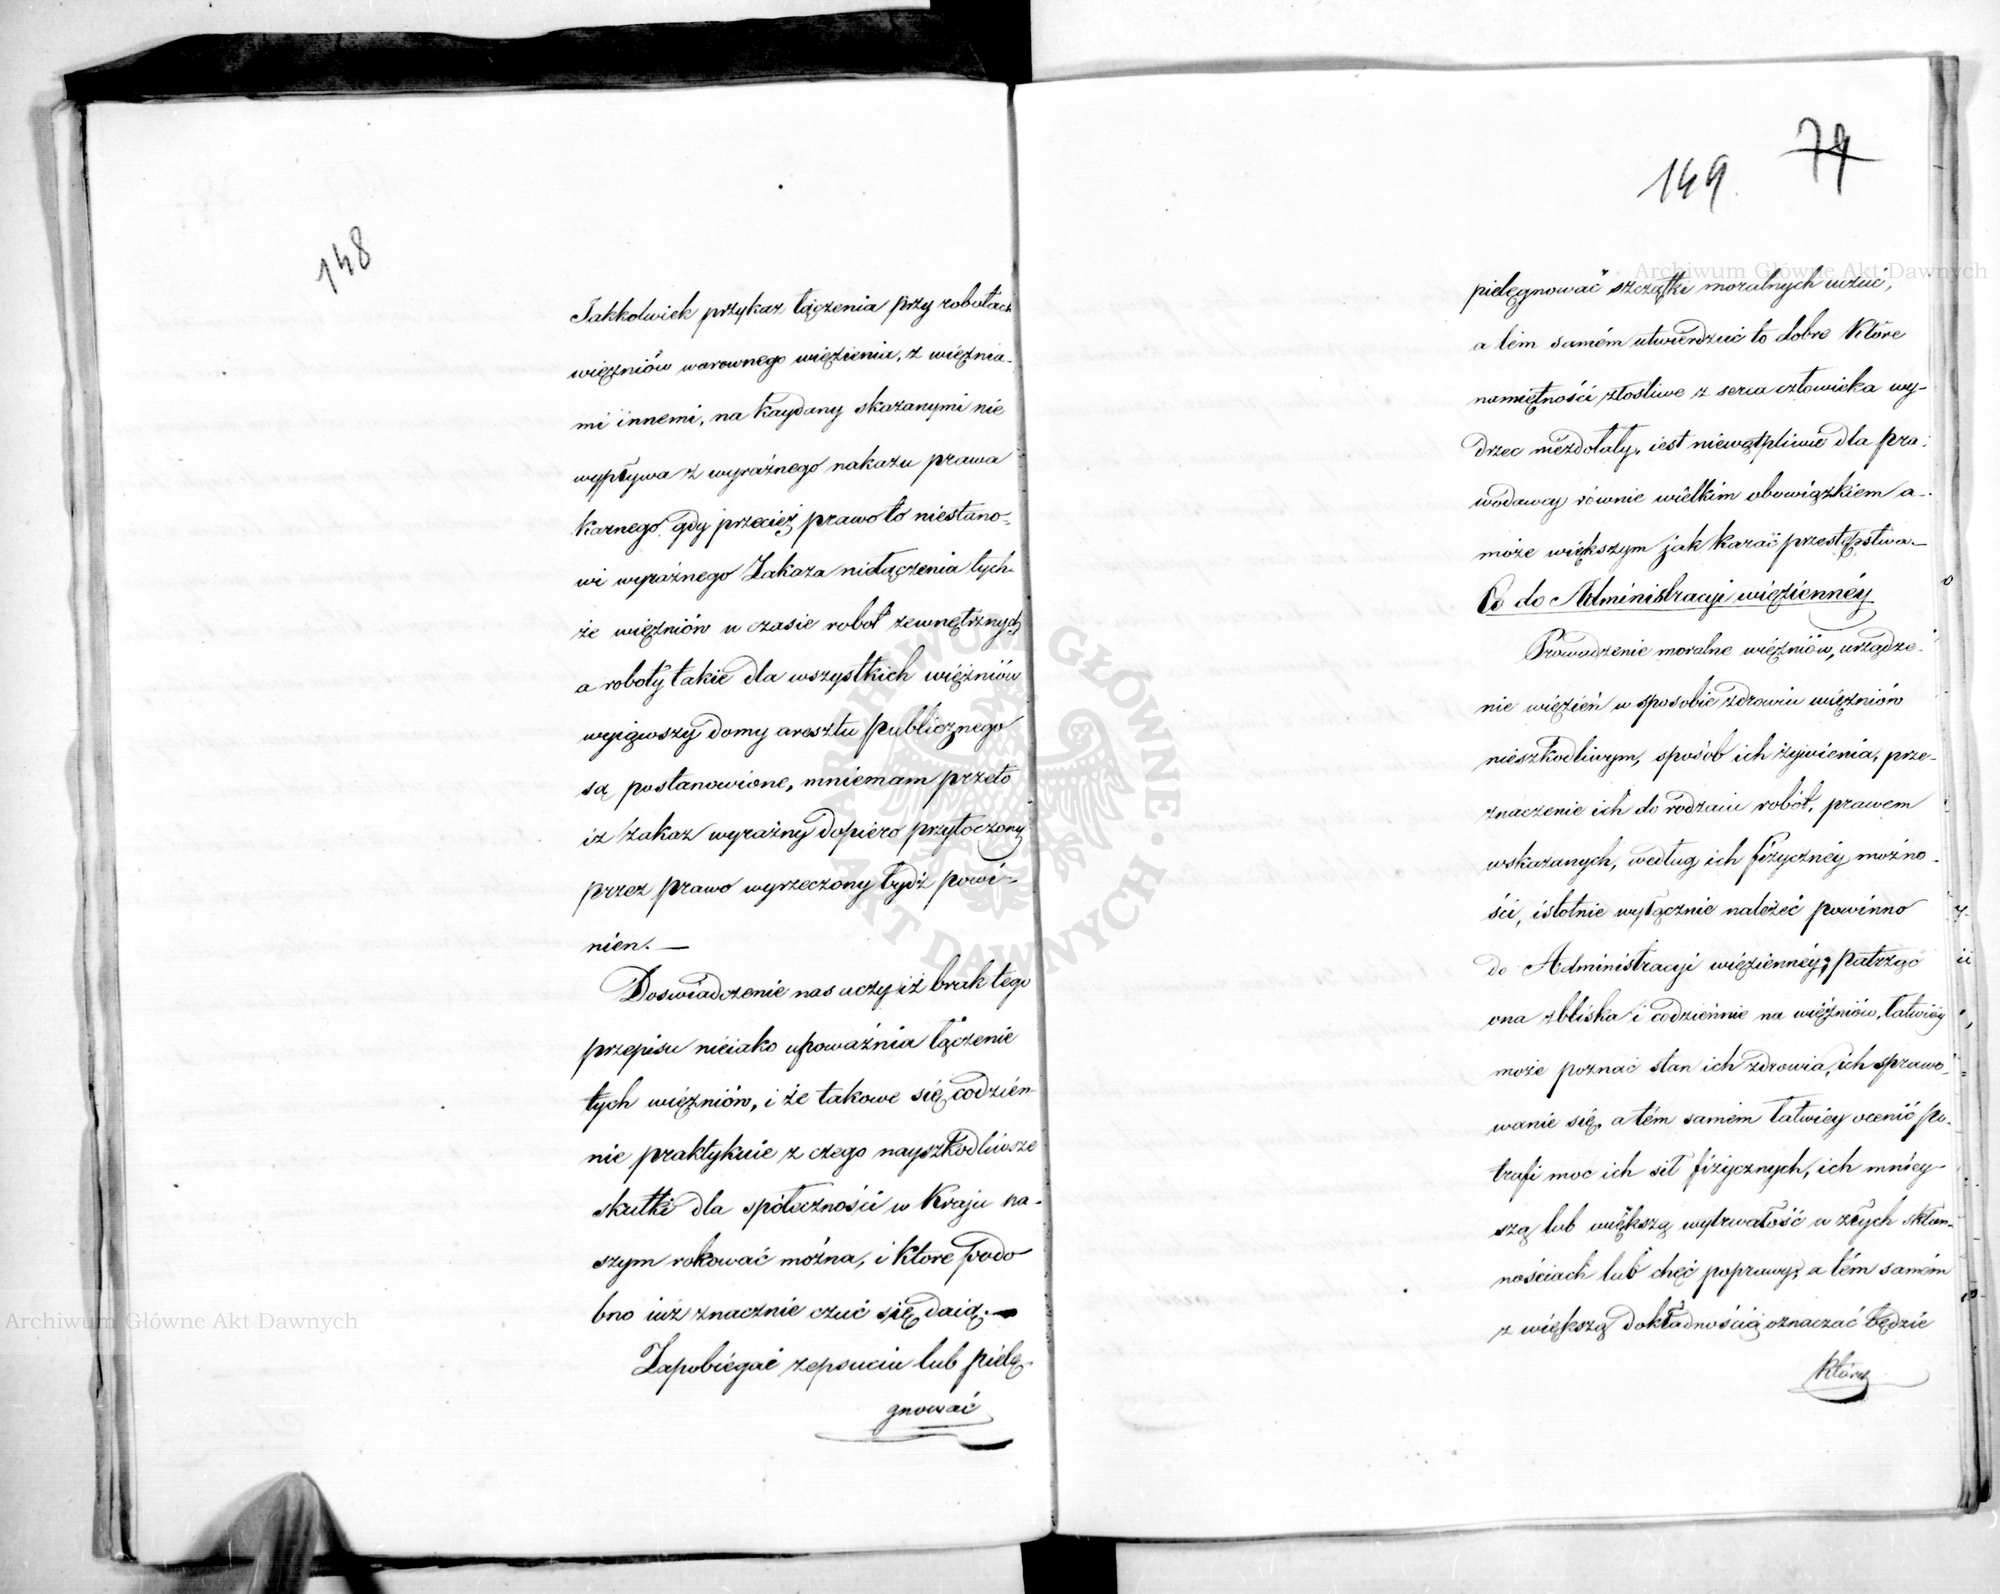 148
Jakkolwiek przykaz łączenia przy robotach
więzniów warownego więzienia, z więznia-
mi innemi, na kaydany skazanymi nie
wypływa z wyraźnego nakazu prawa
karnego, gdy przecież prawo to niestano-
wi wyraźnego Zakazu niełączenia tych-
że więzniów w czasie robót zewnętrznych
a roboty takie dla wszystkich więźniów
wyiąwszy domy aresztu publicznego
są postanowione, mniemam przeto
iż zakaz wyraźny dopiero przytoczony
przez prawo wyrzeczony bydź powi-
nien. —
Doswiadczenie nas uczy iż brak tego
przepisu nieiako upoważnia łączenie
tych więzniów, i że takowe się codzien-
nie praktykuie z czego nayszkodliwsze
skutki dla spółeczności w Kraju na-
szym rokować można, i które podo
bno iuż znacznie czuć się daią. —
Zapobiegać zepsuciu lub pielę-
gnować
149 74
pielęgnować szczątki moralnych uczuć,
a tém samém utwierdzać to dobre które
namiętności złośliwe z serca człowieka wy-
drzec niezdołały, iest niewątpliwie dla pra-
wodawcy równie wielkim obowiązkiem a-
może większym jak karać przestępstwa. —
Co do Administracyi więzienney
Prowadzenie moralne więźniów, urządze-
nie więzień w sposobie zdrowiu więzniów
nieszkodliwym, sposób ich żywienia, prze-
znaczenie ich do rodzaiu robót, prawem
wskazanych, według ich fizyczney możno-
ści, istotnie wyłącznie należeć powinno
do Administracyi więzienney; patrząc
ona zbliska i codziennie na więźniów, łatwiey
może poznać stan ich zdrowia, ich sprawo-
wanie się, a tém samém łatwiey ocenić po-
trafi moc ich sił fizycznych, ich mniey-
szą lub większą wytrwałość w złych skłon-
nościach lub chęć poprawy, a tém samém
z większą dokładnością oznaczać będzie
którzy
Archiwum Główne Akt Dawnych
Archiwum Główne Akt Dawnych
ARCHIWUM GŁÓWNE AKT DAWNYCH